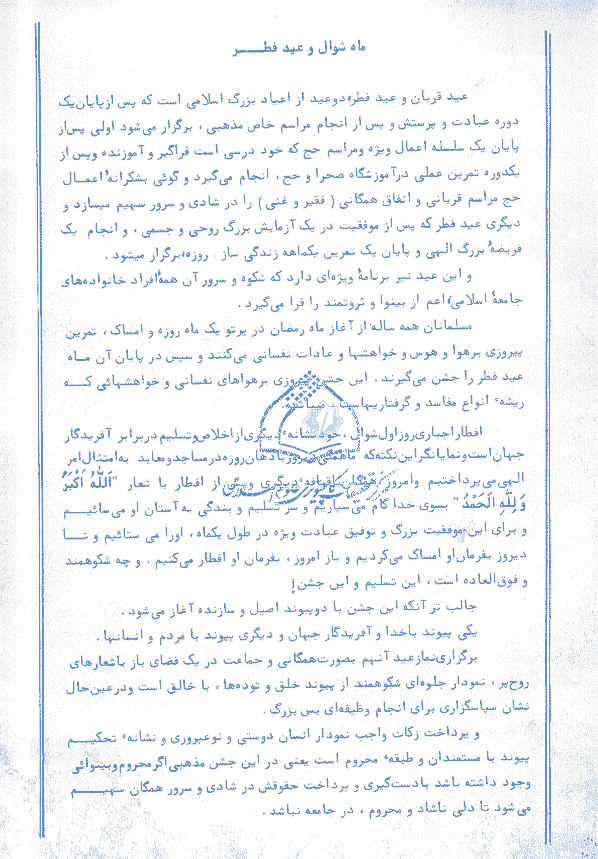 ماه شوال و عید فطـــــر
عید قربان و عید فطر، دوعید از اعیاد بزرگ اسلامی است که پس ازپایان‌یک
دوره عبادت و پرستش و پس از انجام مراسم خاص مذهبی ، برگزار می‌شود اولی پس‌از
پایان یک سلسله اعمال ویژه ومراسم حج که خود درسی است فراگیر و آموزنده وپس از
یکدوره تمرین عملی درآموزشگاه صحرا و حج ، انجام می‌گیرد و گوئی بشکرانهٔ اعمـــال
حج مراسم قربانی و انفاق همگانی ( فقیر و غنی ) را در شادی و سرور سهیم میسازد و
دیگری عید فطر که پس از موفقیت در یک آزمایش بزرگ روحی و جسمی ، و انجام یک
فریضهٔ بزرگ الهی و پایان یک تمرین یکماهه زندگی ساز . روزه، برگزار میشود .
و این عید نیز برنامهٔ ویژه‌ای دارد که شکوه و سرور آن همهٔ افراد خانواده‌های
جامعهٔ اسلامی، اعم از بینوا و ثروتمند را فرا می‌گیرد .
مسلمانان همه ساله از آغاز ماه رمضان در پرتو یک ماه روزه و امساک ، تمرین
پیروزی برهوا و هوس و خواهشها و عادات نفسانی می‌کنند و سپس در پایان آن مــاه
عید فطر را جشن می‌گیرند . این جشن پیروزی برهواهای نفسانی و خواهشهائی کـــه
ریشهٔ انواع مفاسد و گرفتاریهاست ، میباشد .
افطار اجباری روز اول شوال ، خود نشانهٔ دیگری از اخلاص و تسلیم در برابر آفریدگار
جهان است و نمایانگر این نکته که ماهمگی دیروز بادهان روزه در مساجد و معابد به‌امتثال امر
الهی می‌پرداختیم و امروز همگان باقیافه دیگری و پس از افطار با شعار "اَللّٰهُ اَکْبَرُ
وَ لِلّٰهِ الْحَمْدُ " بسوی خدا گام می‌سپاریم و سر تسلیم و بندگی به آستان او می‌سائیـــم
و برای این موفقیت بزرگ و توفیق عبادت ویژه در طول یکماه، اورا می ستائیم و تــــا
دیروز بفرمان‌او امساک می‌کردیم و باز امروز ، بفرمان او افطار می‌کنیم . و چه شکوهمند
و فوق‌العاده است ، این تسلیم و این جشن!
جالب تر آنکه این جشن با دوپیوند اصیل و سازنده آغاز می‌شود .
یکی پیوند باخدا و آفریدگار جهان و دیگری پیوند با مردم و انسانها .
برگزاری‌نمازعید آنهم بصورت‌همگانی و جماعت در یک فضای باز باشعارهای
روح‌پر ، نمودار جلوه‌ای شکوهمند از پیوند خلق و توده‌ها ، با خالق است ودرعین‌حال
نشان سپاسگزاری برای انجام وظیفه‌ای بس بزرگ .
و پرداخت زکات واجب نمودار انسان دوستی و نوعپروری و نشانهٔ تحکیـــم
پیوند با مستمندان و طبقهٔ محروم است یعنی در این جشن مذهبی‌اگر محروم‌وبینوائی
وجود داشته باشد بادست‌گیری و پرداخت حقوقش در شادی و سرور همگان سهیـــــم
می‌شود تا دلی ناشاد و محروم ، در جامعه نباشد .